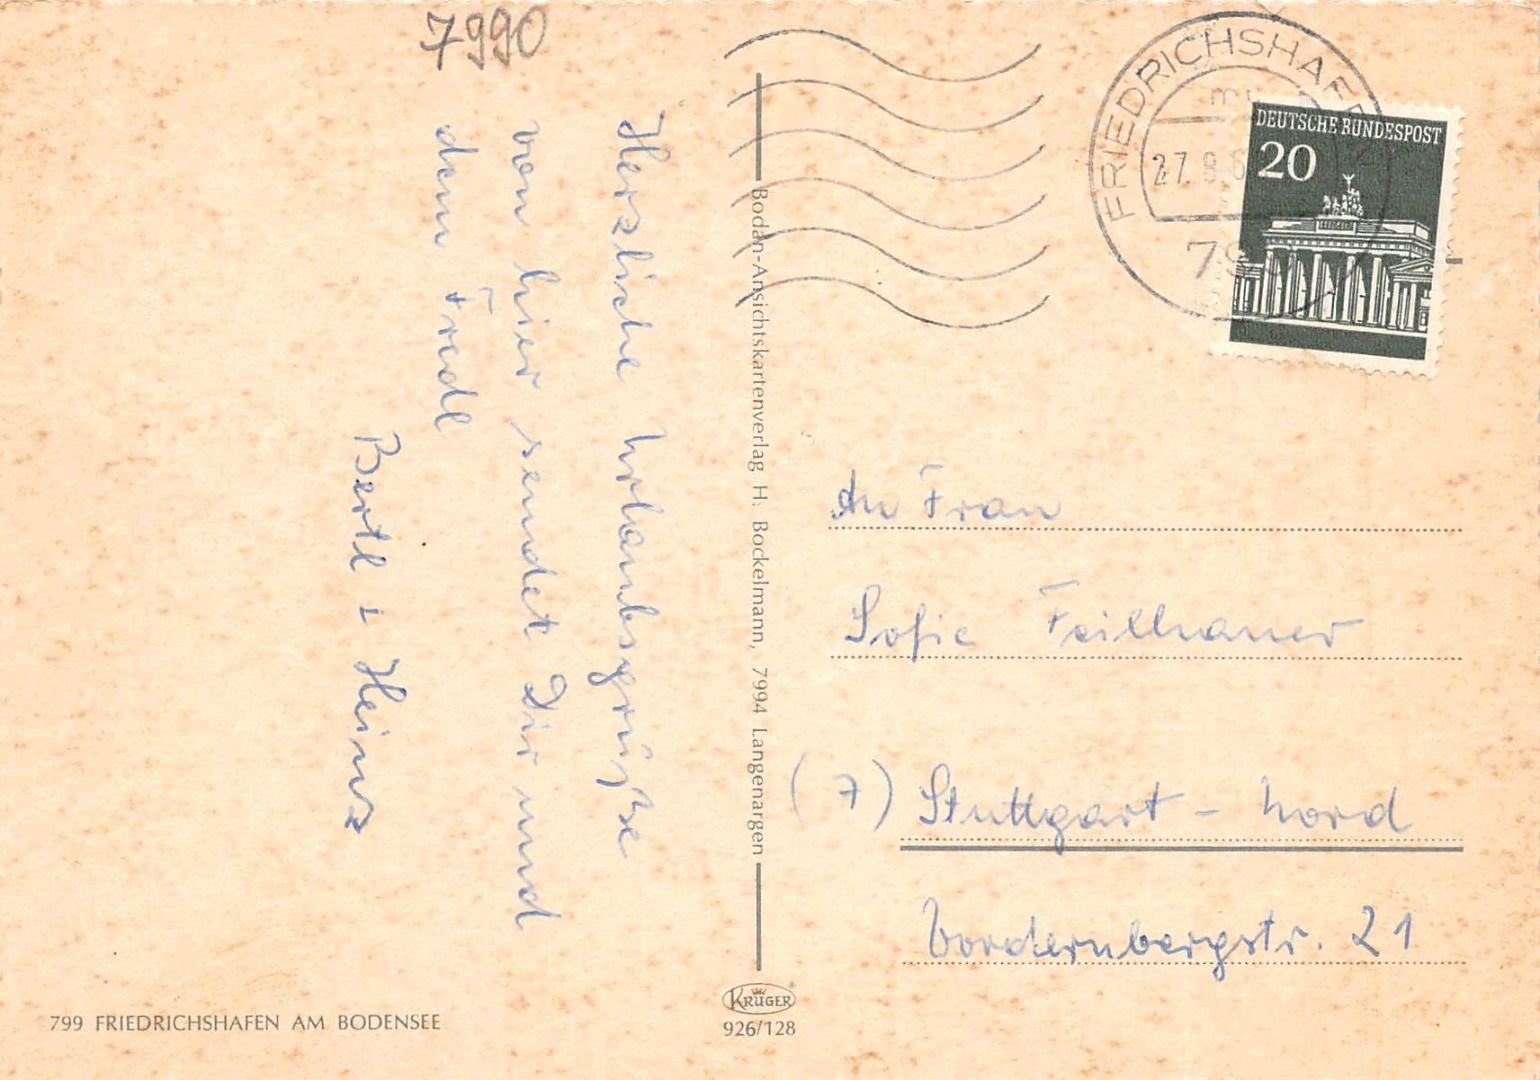 7990
Herzliche Urlaubsgrüße
von hier sendet Dir und
dem Fredl
Bertl & Heinz
Bodan-Ansichtskartenverlag H. Bockelmann, 7994 Langenargen
FRIEDRICHSHAFE
27. 8. 6
79
DEUTSCHE BUNDESPOST
20
An Frau
Sofie Feilhauer
(7) Stuttgart - Nord
Vordernbergstr. 21
799 FRIEDRICHSHAFEN AM BODENSEE
KRÜGER
926/128